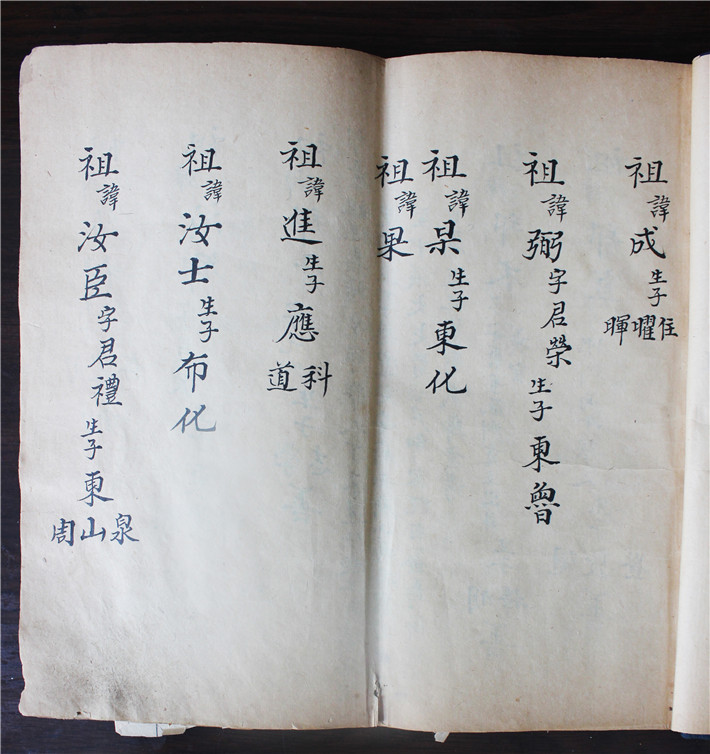 祖諱成生子住曜暉
祖諱弼字君榮生子東魯
祖諱杲生子東化
祖諱果
祖諱進生子應科道
祖諱汝士生子布化
祖諱汝臣字君禮生子東泉山周